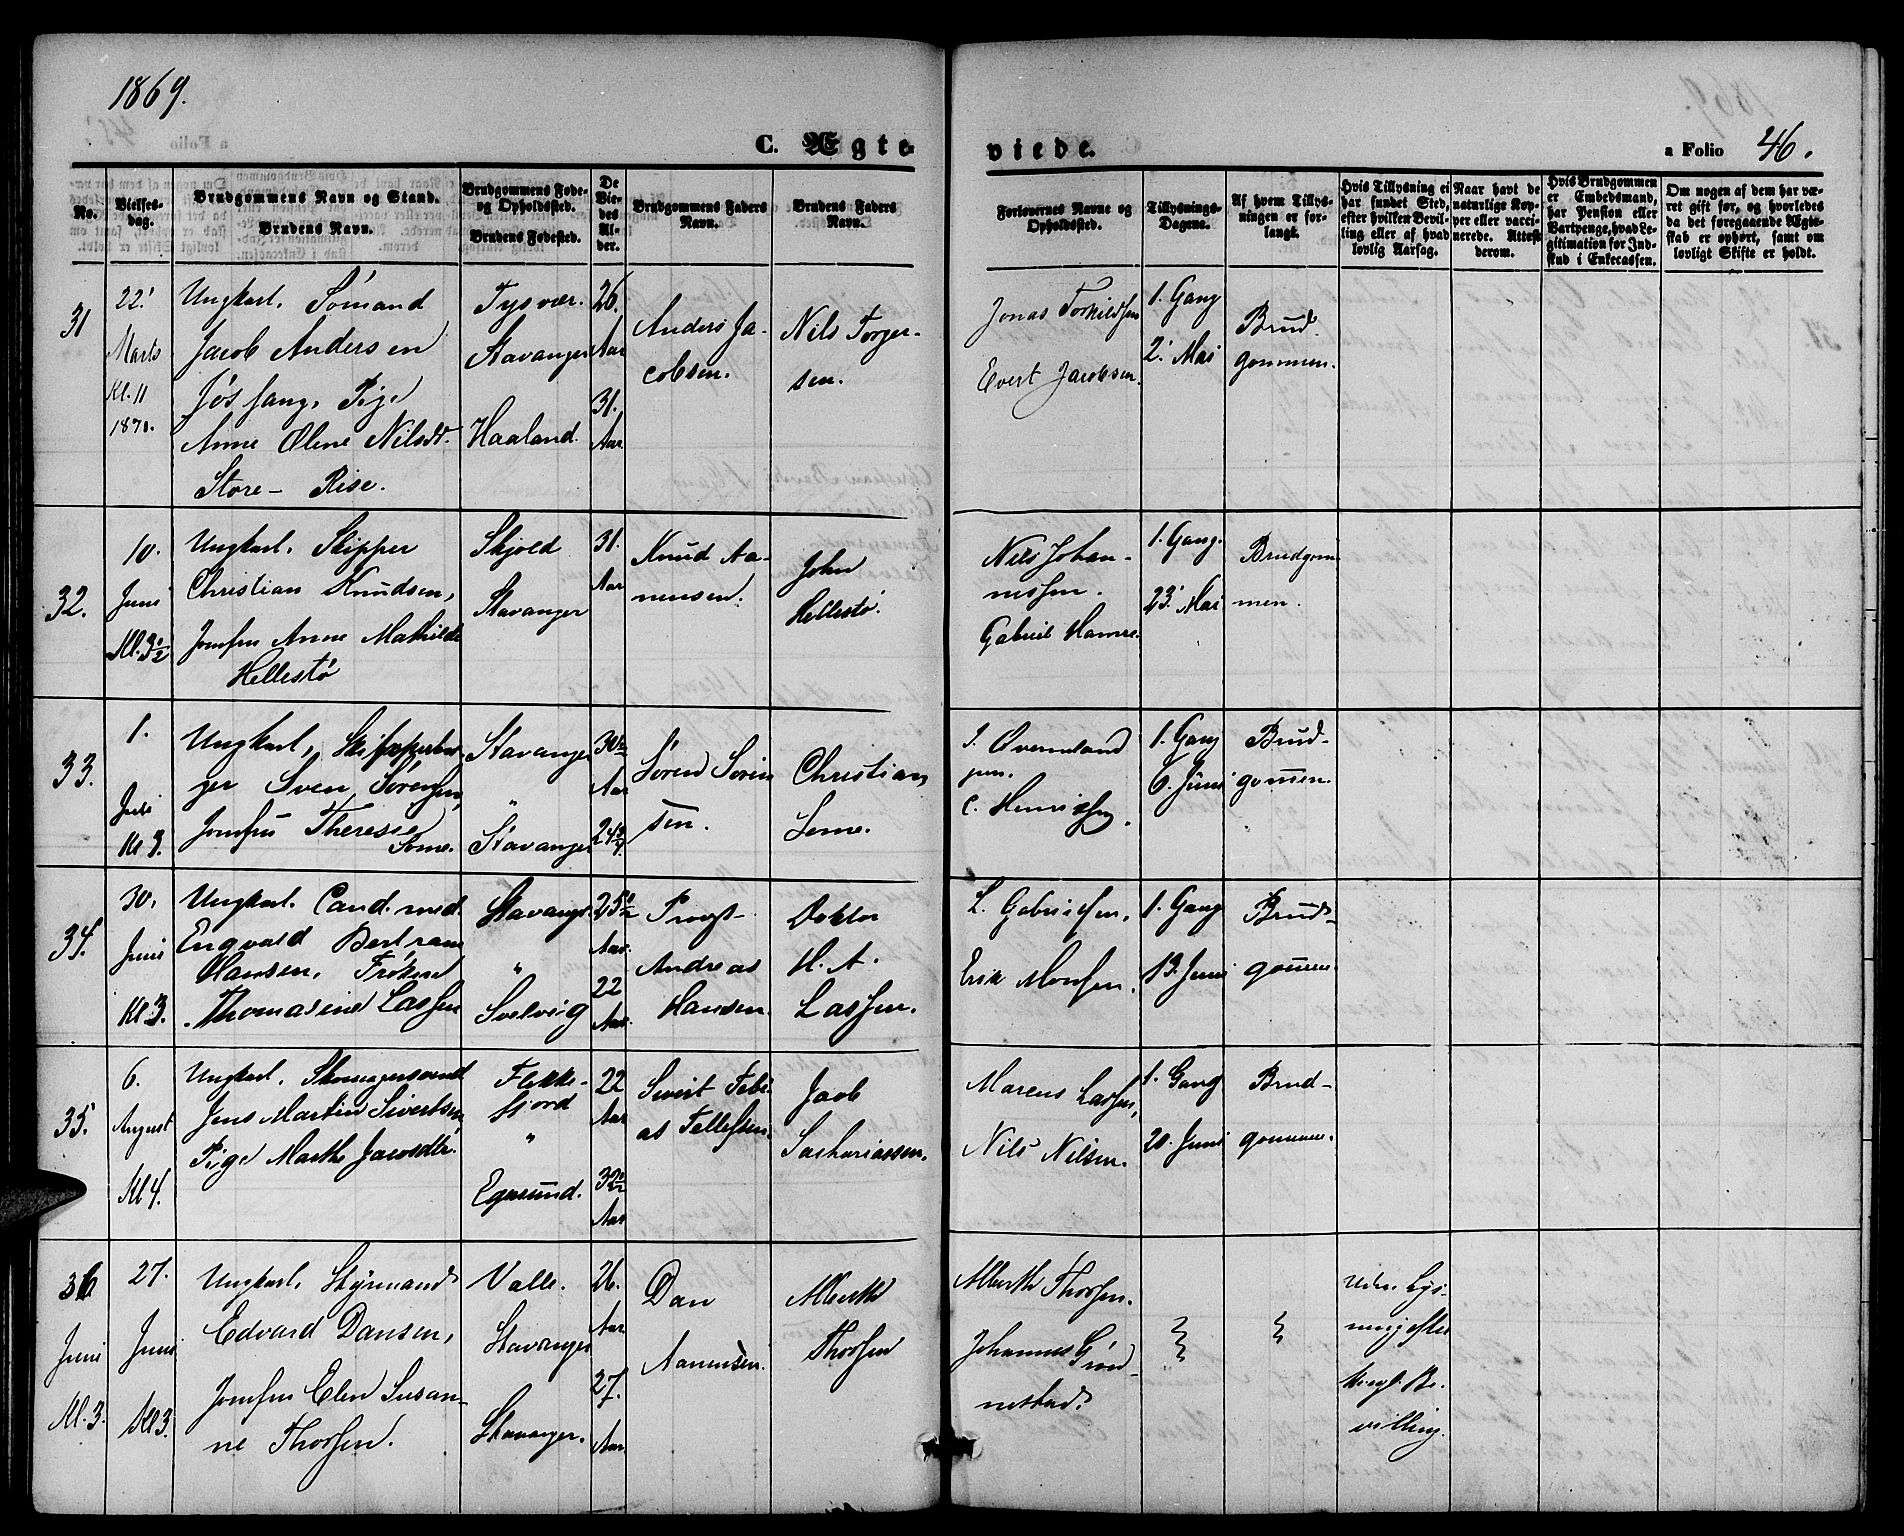 1869.
C. Ægte-
viede.
a Folio 46.
No.
Vielses-
dag.
Brudgommens Navn og Stand.
Brudens Navn.
Brudgommens Føde-
og Opholdssted.
Brudens Fødested.
De
Vie-
des
Al-
der.
Brudgommens Faders
Navn.
Brudens Faders
Navn.
Forlovernes Navne og
Opholdssted.
Tillysnings-
Dagene.
Af hvem Tillys-
ningen er for-
langt.
Hvis Tillysning ei
har fundet Sted,
efter hvilken Bevil-
ling eller af hvad
lovlig Aarsag.
Naar havt de
naturlige Kop-
per eller vacci-
nerede. Attest
derom.
Hvis Brudgommen
er Embedsmand,
har Pension eller
Vartpenge, hvad Le-
gitimation for Ind-
skud i Enkecassen.
Om nogen af dem har væ-
ret gift før, og hvorledes
da det foregaaende Ægte-
skab er ophørt, samt om
lovligt Skifte er holdt.
31
22.
Marts
Kl. 11
1870.
Ungkarl. Sömand
Jacob Andersen
Jösfang. Pige
Anne Olene Nilsdr.
Store- Rise.
Tysvær.
Stavanger
Haaland.
26.
Aar
31.
Aar
Anders Ja-
cobsen.
Nils Torger-
sen.
Jonas Torkildsen
Evert Jacobsen.
1. Gang
2. Mai
Brud-
gommen.
32.
10.
Juni
Kl. 3½
Ungkarl. Skipper
Christian Knudsen,
Jomfru Anne Mathilde
Hellestö
Skjold
Stavanger
31.
Aar
Knud Aa-
nensen.
John
Hellestö.
Nils Johan-
nessen.
Gabriel Hamre.
1. Gang.
23. Mai
Brudgom-
men.
33.
1.
Juli
Kl 3.
Ungkarl, Skipsrb
ger Sven Sörensen,
Jomfru Therese
Some.
Stavanger
"
Stavanger
30½
Aar
24¾
Sören Sörin
sen.
Christian
Some.
Øvermland
jun.
C. Henriksen.
1. Gang
6. Juni
Brud-
gommen.
34.
30.
Juni
Kl. 3.
Ungkarl. Cand. med.
Engvald Bertram
Hansen. Fröken
Thomasine Lassen
Stavanger
"
Svelvig
25½
Aar.
22
Aar.
Provst
Andreas
Hansen.
Doktor
H. A.
Lassen.
L. Gabrielsen.
Erik Monsen.
1. Gang
13. Juni
Brud-
gommen
35.
6.
August
Kl 4.
Ungkarl. Skomagersvend
Jens Martin Sivertsen,
Pige Marthe Jacobdtr.
Flekke-
fjord
"
Egersund.
22
Aar
32½
Aar
Sivert Tobi-
as Tellefsen.
Jacob
Sachariassen.
Marcus Lassen,
Nils Nilsen.
1. Gang
20. Juni
Brud-
gommen.
36
Juni
Kl. 3.
27.
Juni
Kl 3.
Ungkarl. Styrmand
Edvard Dansen,
Jomfru Elen Susan-
ne Thorsen.
Valle.
Stavanger
Stavanger.
26.
Aar
27.
Aar
Dan
Aanensen.
Alberth
Thorsen
Alberth Thorsen.
Johannes Grön-
nestad.
Uden Lys-
ning efter
kongl. Be-
villing.